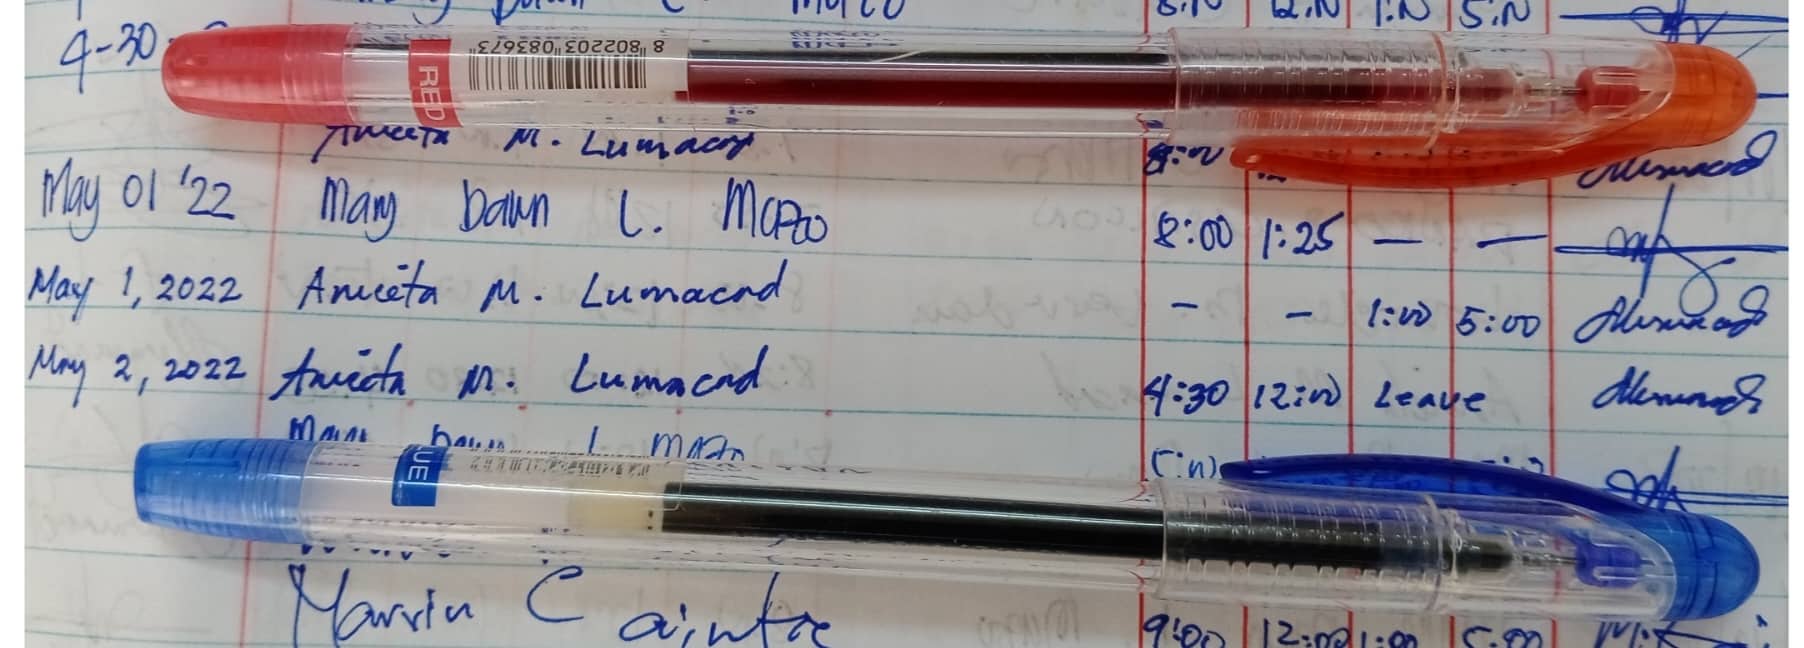 8:00 12:00 1:00 5:00
4-30
8 802203 083673
RED
Aniceta M. Lumacad 8:00
May 01 '22 Mary Dawn L. Morzo 8:00 1:25 — —
May 1, 2022 Aniceta M. Lumacad - - 1:00 5:00
May 2, 2022 Aniceta M. Lumacad 4:30 12:00 Leave
Mary Dawn L. Morzo
UE
Marvin C 9:00 12:00 1:00 5:00